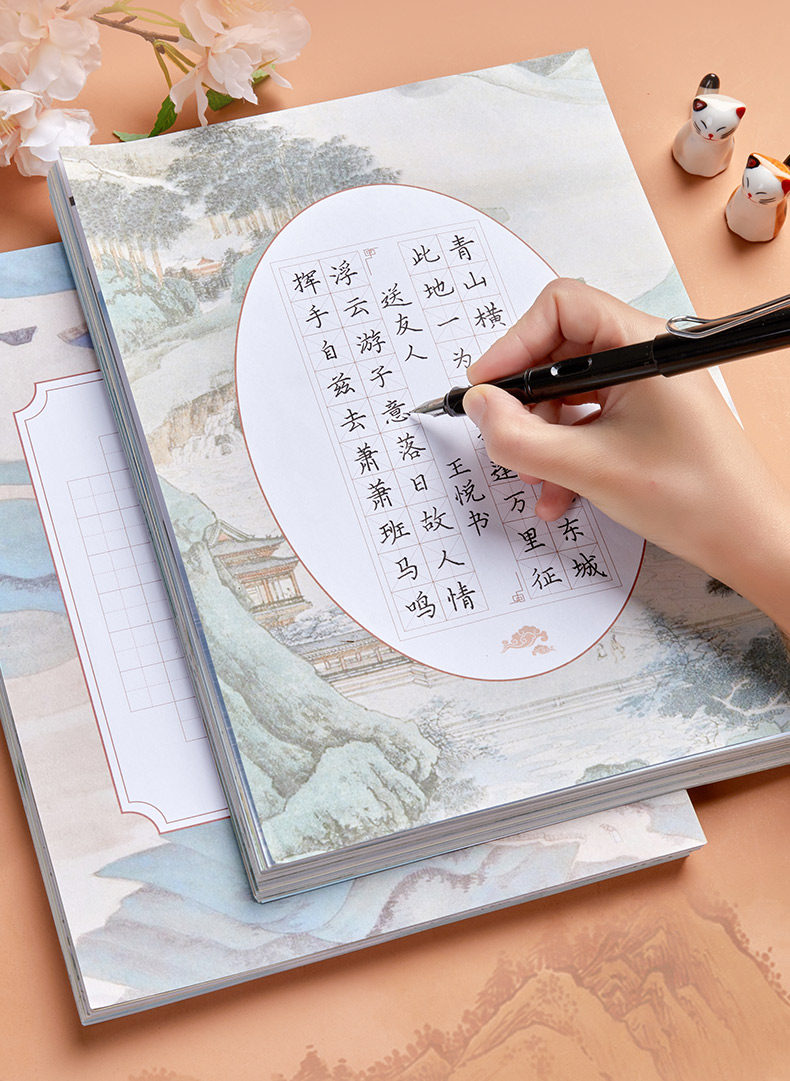 青山横东城
此地一为蓬万里征
送友人
王悦书
浮云游子意落日故人情
挥手自兹去萧萧班马鸣